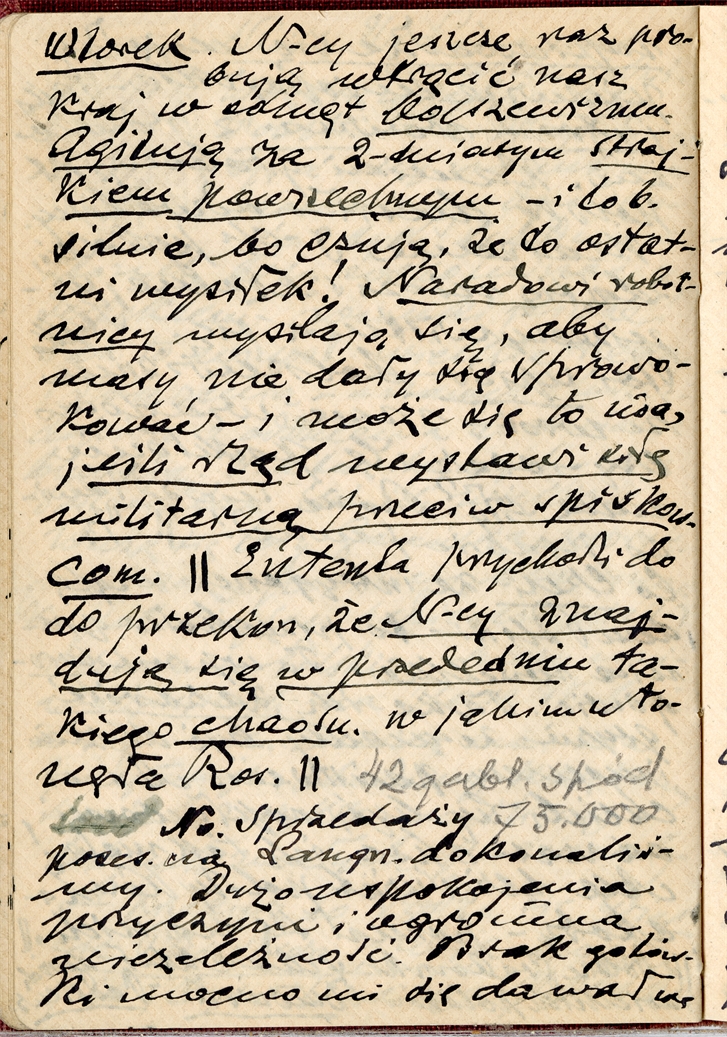 Wtorek. N-cy jeszcze raz pro-
bują wtrącić nasz
kraj w odmęt bolszewizmu.
Agitują za 2-dniowym straj-
kiem powszechnym – i to b.
silnie, bo czują, że to ostat-
ni wysiłek! Narodowi robot-
nicy wysilają się, aby
masy nie dały się sprowo-
kować – i może się to uda,
jeśli rząd wystawi siłę
militarną przeciw spiskow-
com. || Ententa przychodzi do
do przekon, że N-cy znaj-
dują się w przededniu ta-
kiego chaosu. w jakim uto-
nęła Ros. ||
42 gabl. spód
No. Sprzedaży 75.000
poses. na Langn. dokonaliś-
my. Dużo uspokojenia
przyczyni i ogromna
niezależność. Brak gotów-
ki mocno mi się dawał we